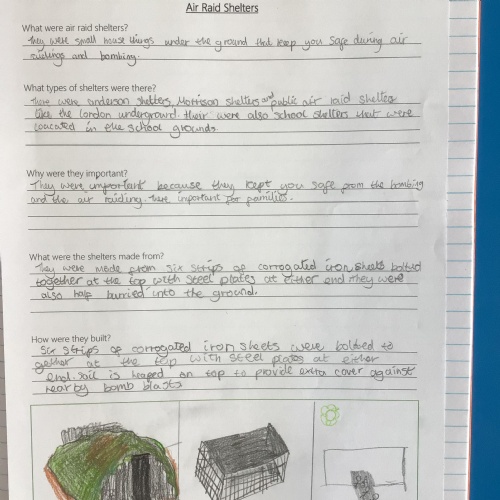 Air Raid Shelters
What were air raid shelters?
They were small house things under the ground that keep you safe during air
raidings and bombing.
What types of shelters were there?
There were anderson shelters, Morrison shelters and public air raid shelters
like the London underground. their were also school shelters that were
loacated in the school grounds
Why were they important?
They were important because they kept you safe from the bombing
and the air raiding. There important for families.
What were the shelters made from?
They were made from six strips of corrogated iron sheets bolted
together at the top with steel plates at either end They were
also half burried into the ground.
How were they built?
Six strips of corrogated iron sheets were bolted to
gether at the top with steel plates at either
end. soil is heaped on top to provide extra cover against
nearby bomb blasts